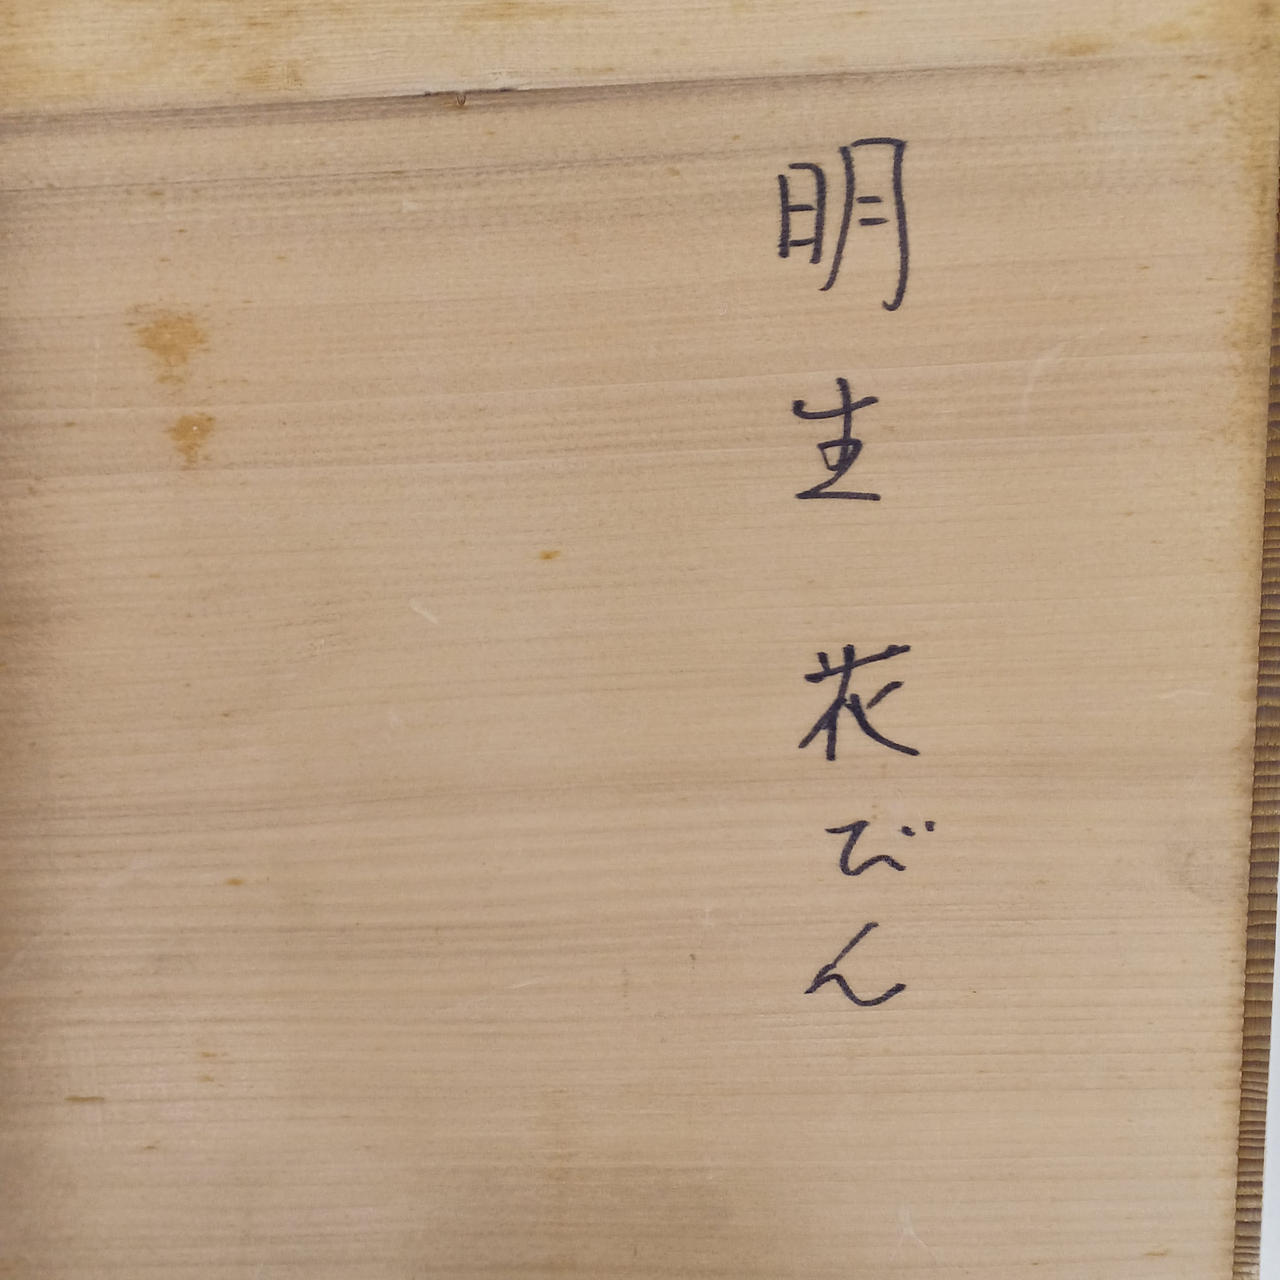 明生 花びん